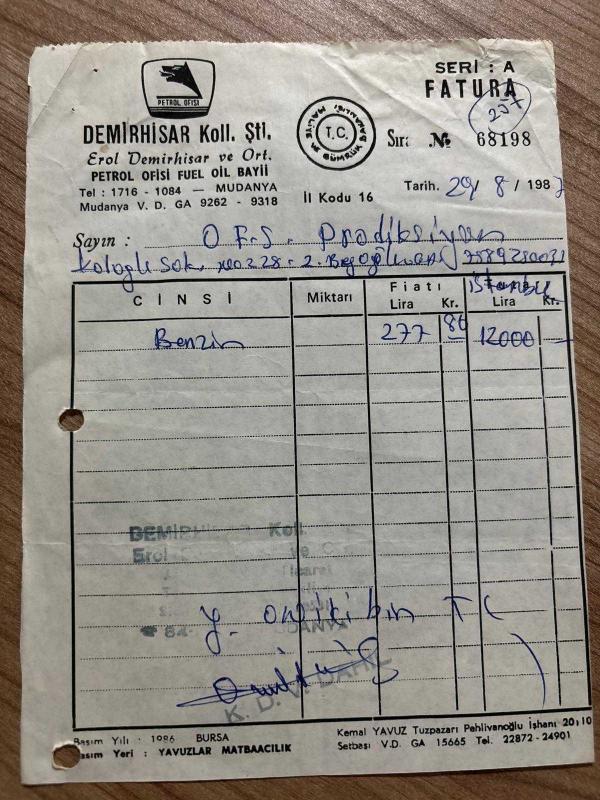 PETROL OFİSİ
SERİ : A
FATURA
257
DEMİRHİSAR Koll. Şti.
Erol Demirhisar ve Ort.
PETROL OFİSİ FUEL OİL BAYİİ
Tel : 1716 - 1084 — MUDANYA
Mudanya V. D. GA 9262 - 9318
T.C.
MALİYE VE GÜMRÜK BAKANLIĞI
Sıra № 68198
İl Kodu 16
Tarih. 29/ 8 / 1987
Sayın : O F.S. Prodiksiyon
İstanbul
CİNSİ Miktarı Fiatı Lira Kr. Lira Kr.
Benzin 277 86 12000 —
DEMİRHİSAR Koll.
Erol ve
Y. oniki bin TL
K. D. V. DAHİL
Basım Yılı - 1986 BURSA
Basım Yeri : YAVUZLAR MATBAACILIK
Kemal YAVUZ Tuzpazarı Pehlivanoğlu İşhanı 20/10
Setbaşı V.D. GA 15665 Tel. 22872 - 24901